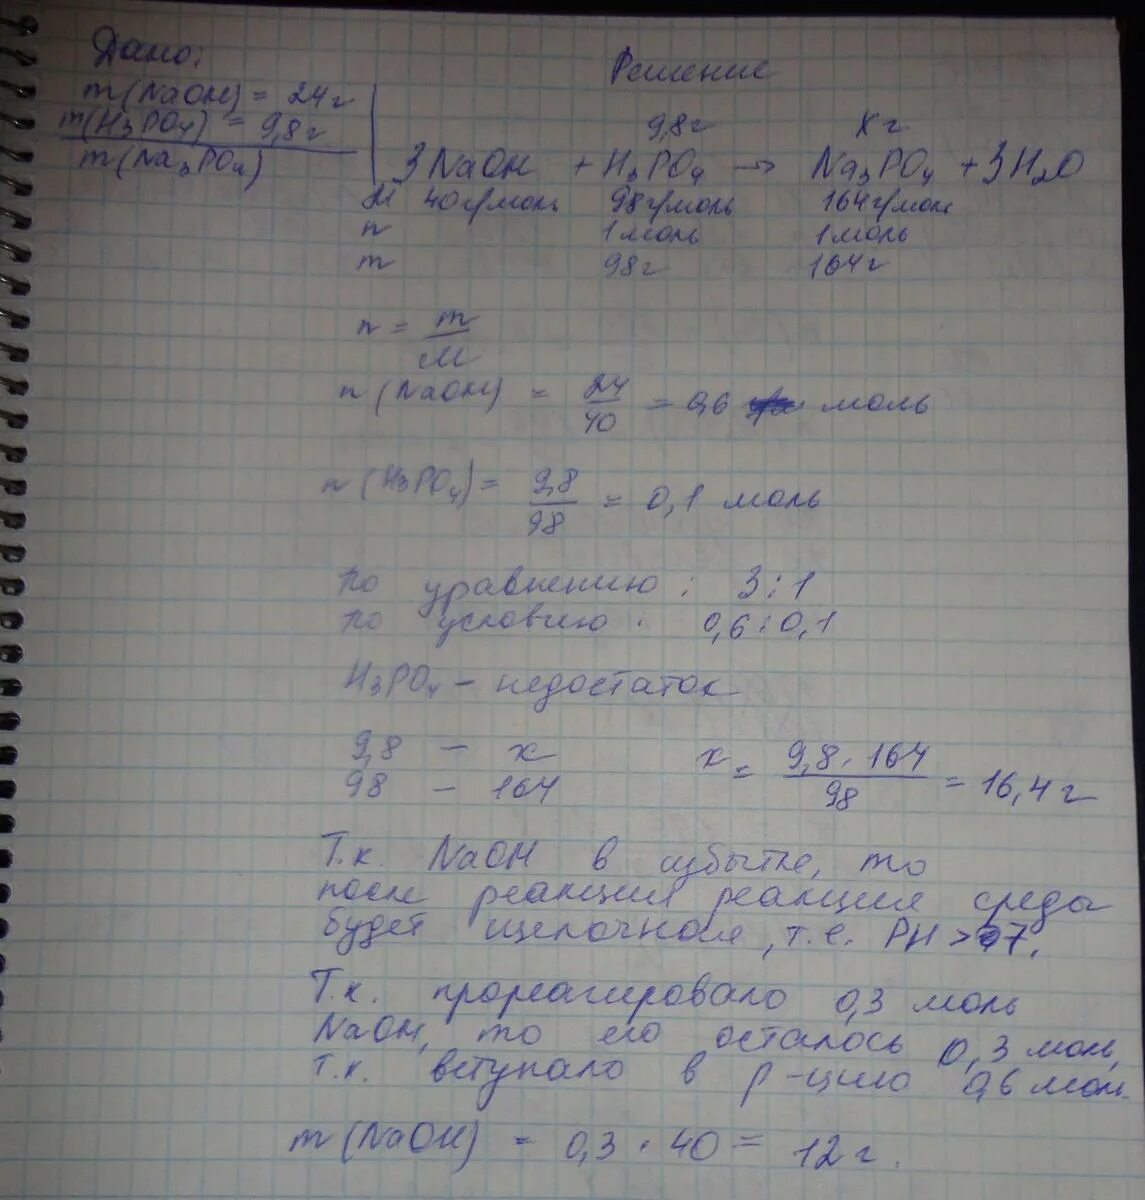 Дано:
m(NaOH) = 24 г
m(H₃PO₄) = 9,8 г
m(Na₃PO₄)
Решение
9,8г х г
3NaOH + H₃PO₄ → Na₃PO₄ + 3H₂O
M 40г/моль 98г/моль 164г/моль
n 1моль 1моль
m 98г 164г
n = m/M
n (NaOH) = 24/40 = 0,6 моль
n (H₃PO₄) = 9,8/98 = 0,1 моль
по уравнению : 3:1
по условию : 0,6:0,1
H₃PO₄ – недостаток
9,8 – х
98 – 164
х = 9,8 · 164/98 = 16,4 г
Т.к. NaOH в избытке, то
после реакции реакция среды
будет щелочная, т.е. PH > 7.
Т.к. прореагировало 0,3 моль
NaOH, то его осталось 0,3 моль,
т.к. вступало в р-цию 0,6 моль
m (NaOH) = 0,3 · 40 = 12 г.